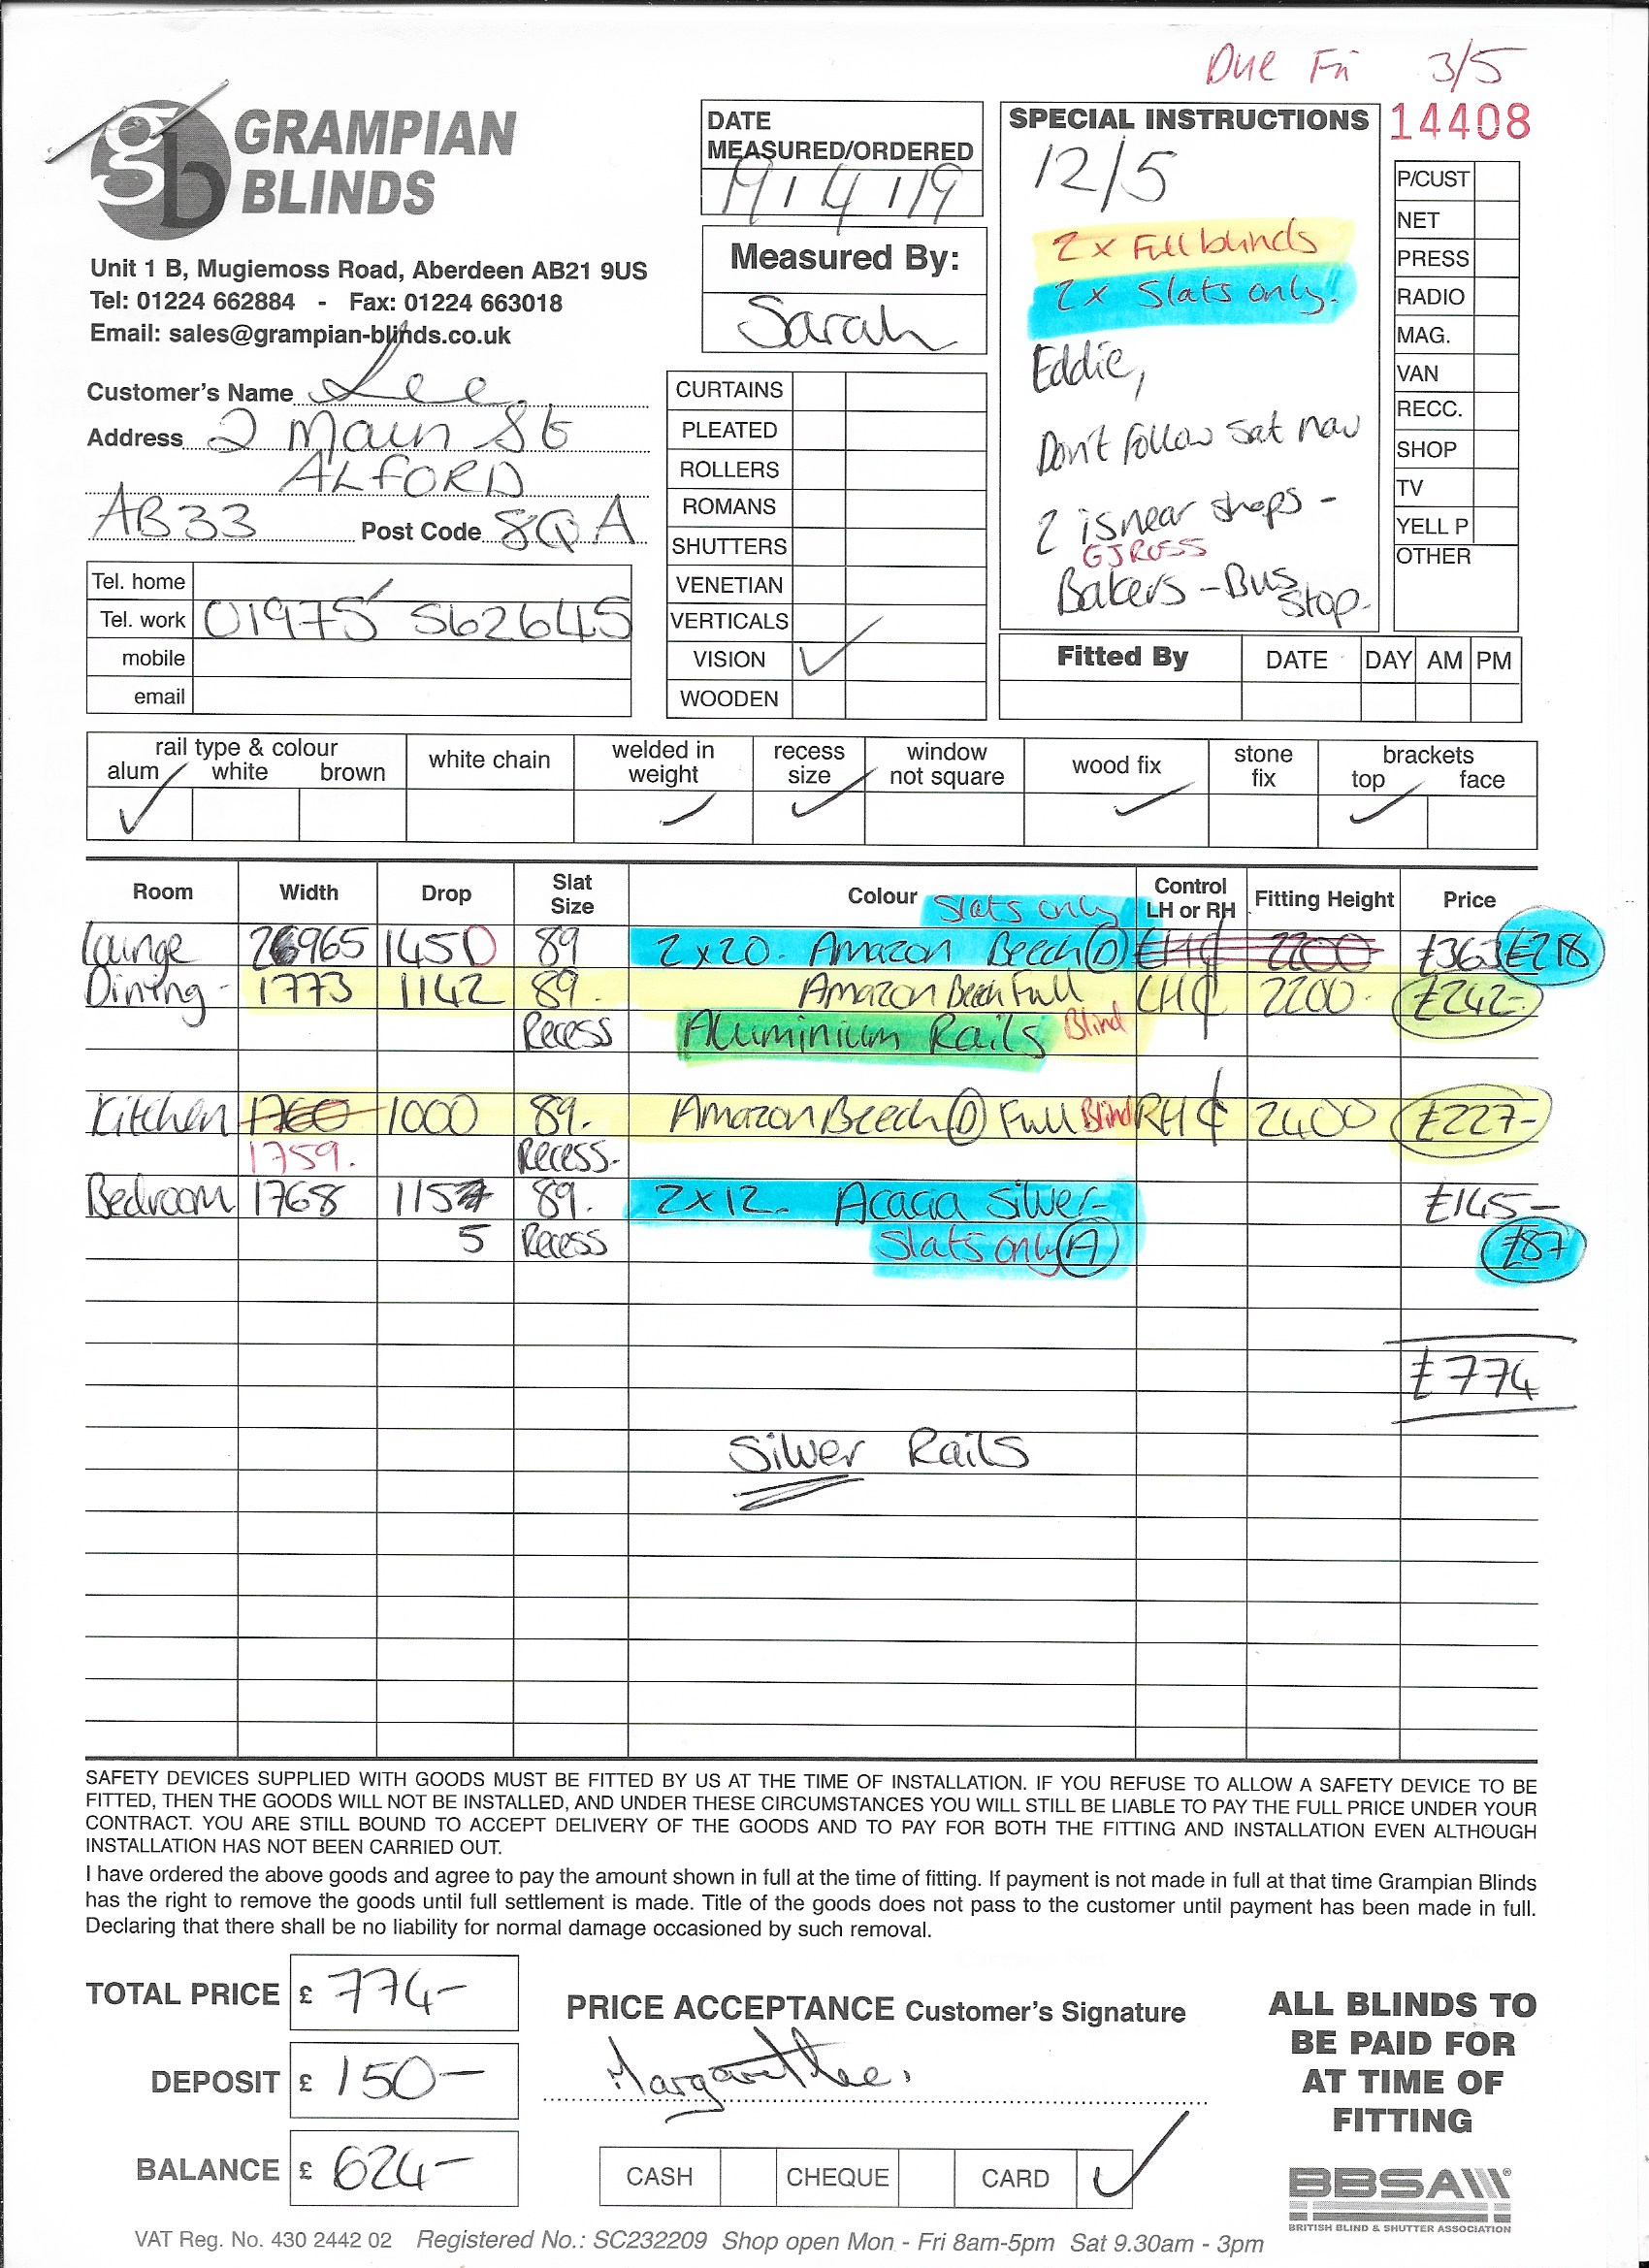 Due Fri 3/5
14408
gb GRAMPIAN
BLINDS
Unit 1 B, Mugiemoss Road, Aberdeen AB21 9US
Tel: 01224 662884 - Fax: 01224 663018
Email: sales@grampian-blinds.co.uk
Customer's Name Lee
Address 2 Main St
ALFORD
AB33 Post Code 8QA
Tel. home
Tel. work 01975 562645
mobile
email
DATE
MEASURED/ORDERED
/4/19
Measured By:
Sarah
CURTAINS
PLEATED
ROLLERS
ROMANS
SHUTTERS
VENETIAN
VERTICALS
VISION ✓
WOODEN
SPECIAL INSTRUCTIONS
12/5
2 x Full blinds
2 x Slats only.
Eddie,
Don't follow sat nav
2 is near shops -
GJ ROSS
Bakers - Bus
Stop.
P/CUST
NET
PRESS
RADIO
MAG.
VAN
RECC.
SHOP
TV
YELL P
OTHER
Fitted By DATE DAY AM PM
rail type & colour
alum ✓ white brown
white chain
welded in weight ✓
recess size ✓
window not square
wood fix ✓
stone fix
brackets
top ✓ face
Room Width Drop Slat Size Colour Control LH or RH Fitting Height Price
Slats only
Lounge 2965 1450 89 2x20. Amazon Beech D 2200 £363 £218
Dining - 1773 1142 89. Amazon Beech Full LH₵ 2200. £242-
Recess Aluminium Rails Blind
Kitchen 1760 1000 89. Amazon Beech D Full Blind RH ₵ 2400 £227-
1759. Recess.
Bedroom 1768 115 89. 2x12. Acacia Silver- £145-
5 Recess Slats only A £87
£774
Silver Rails
SAFETY DEVICES SUPPLIED WITH GOODS MUST BE FITTED BY US AT THE TIME OF INSTALLATION. IF YOU REFUSE TO ALLOW A SAFETY DEVICE TO BE
FITTED, THEN THE GOODS WILL NOT BE INSTALLED, AND UNDER THESE CIRCUMSTANCES YOU WILL STILL BE LIABLE TO PAY THE FULL PRICE UNDER YOUR
CONTRACT. YOU ARE STILL BOUND TO ACCEPT DELIVERY OF THE GOODS AND TO PAY FOR BOTH THE FITTING AND INSTALLATION EVEN ALTHOUGH
INSTALLATION HAS NOT BEEN CARRIED OUT.
I have ordered the above goods and agree to pay the amount shown in full at the time of fitting. If payment is not made in full at that time Grampian Blinds
has the right to remove the goods until full settlement is made. Title of the goods does not pass to the customer until payment has been made in full.
Declaring that there shall be no liability for normal damage occasioned by such removal.
TOTAL PRICE £ 774-
DEPOSIT £ 150-
BALANCE £ 624-
PRICE ACCEPTANCE Customer's Signature
Margaret Lee.
CASH CHEQUE CARD ✓
ALL BLINDS TO
BE PAID FOR
AT TIME OF
FITTING
BBSA
BRITISH BLIND & SHUTTER ASSOCIATION
VAT Reg. No. 430 2442 02 Registered No.: SC232209 Shop open Mon - Fri 8am-5pm Sat 9.30am - 3pm